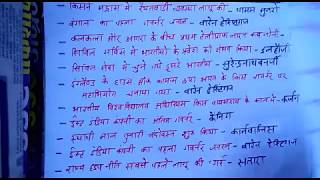 किसने मद्रास में रैयतवाड़ी व्यवस्था लागू की - थामस मुनरो
बंगाल का पहला गवर्नर जनरल - वारेन हेस्टिंग्स
कलकत्ता और आगरा के बीच प्रथम टेलीग्राफ लाइन कब
सिविल सर्विस में भारतीयों के प्रवेश को संभव बनाया - डलहौजी
सिविल सेवा में चुने गये दूसरे भारतीय - सुरेन्द्रनाथ बनर्जी
इंग्लैण्ड के हाउस ऑफ कामन्स द्वारा भारत के किस गवर्नर पर
महाभियोग चलाया गया - वारेन हेस्टिंग्स
भारतीय विश्वविद्यालय अधिनियम किस वायसराय के काल में - कर्जन
ईस्ट इंडिया कंपनी का अंतिम गवर्नर - कैनिंग
स्थायी भूमि बंदोबस्त शुरू किया - कार्नवालिस
ईस्ट इंडिया कंपनी का पहला गवर्नर जनरल - वारेन हेस्टिंग्स
राज्य हड़प नीति सबसे पहले लागू की गई - सतारा